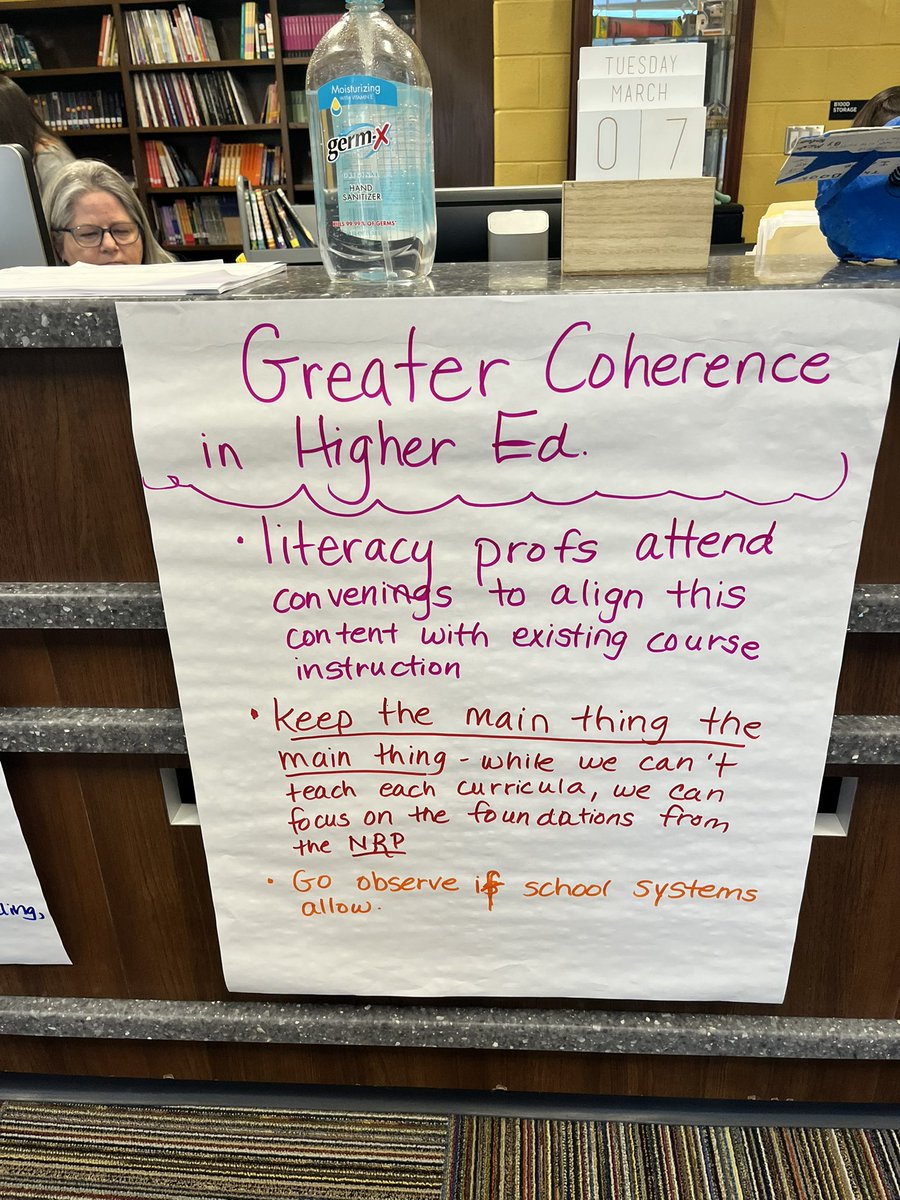 Moisturizing
WITH VITAMIN E
germ-X
ORIGINAL
HAND
SANITIZER
KILLS 99.99% OF GERMS
TUESDAY
MARCH
0 7
B100D
STORAGE
Greater Coherence
in Higher Ed.
• literacy profs attend
convenings to align this
content with existing course
instruction
• keep the main thing the
main thing - while we can't
teach each curricula, we can
focus on the foundations from
the NRP
• Go observe if school systems
allow.